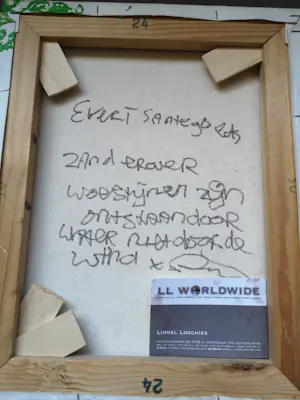 24
EVERT SANTEGOEDS
ZAND EROVER
WOESTIJNEN ZIJN
ONTSTAAN DOOR
WATER NIET DOOR DE
WIND x
LL WORLDWIDE
LIONEL LOGCHIES
24